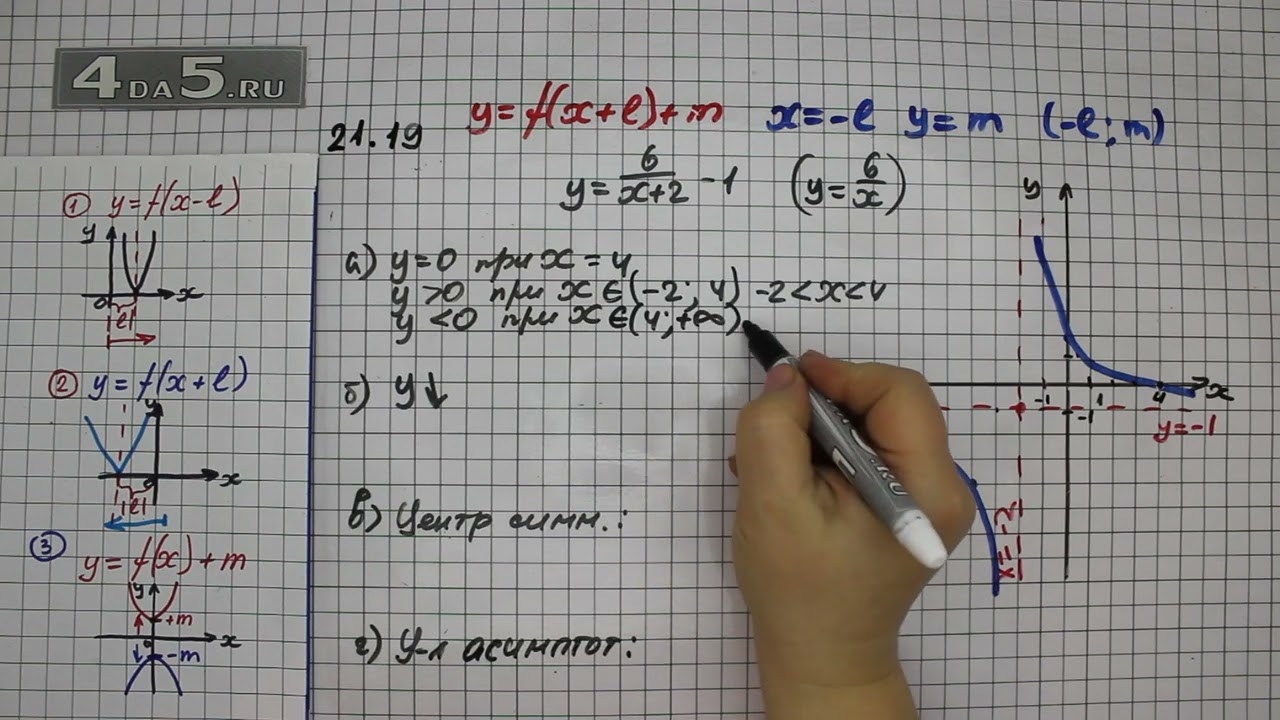 4DA5.RU
21.19
y=f(x+l)+m x=-l y=m (-l; m)
y=6/(x+2) -1 (y=6/x)
① y=f(x-l)
y
x
0
|l|
② y=f(x+l)
y
x
0
|l|
③ y=f(x)+m
y
+m
x
0
-m
а) y=0 при x=4
y>0 при x∈(-2; 4) -2<x<4
y<0 при x∈(4;+∞)
б) y↓
в) Центр симм.:
г) У-я асимптот:
y
x
-1 1 4
-1
y=-1
x=-2